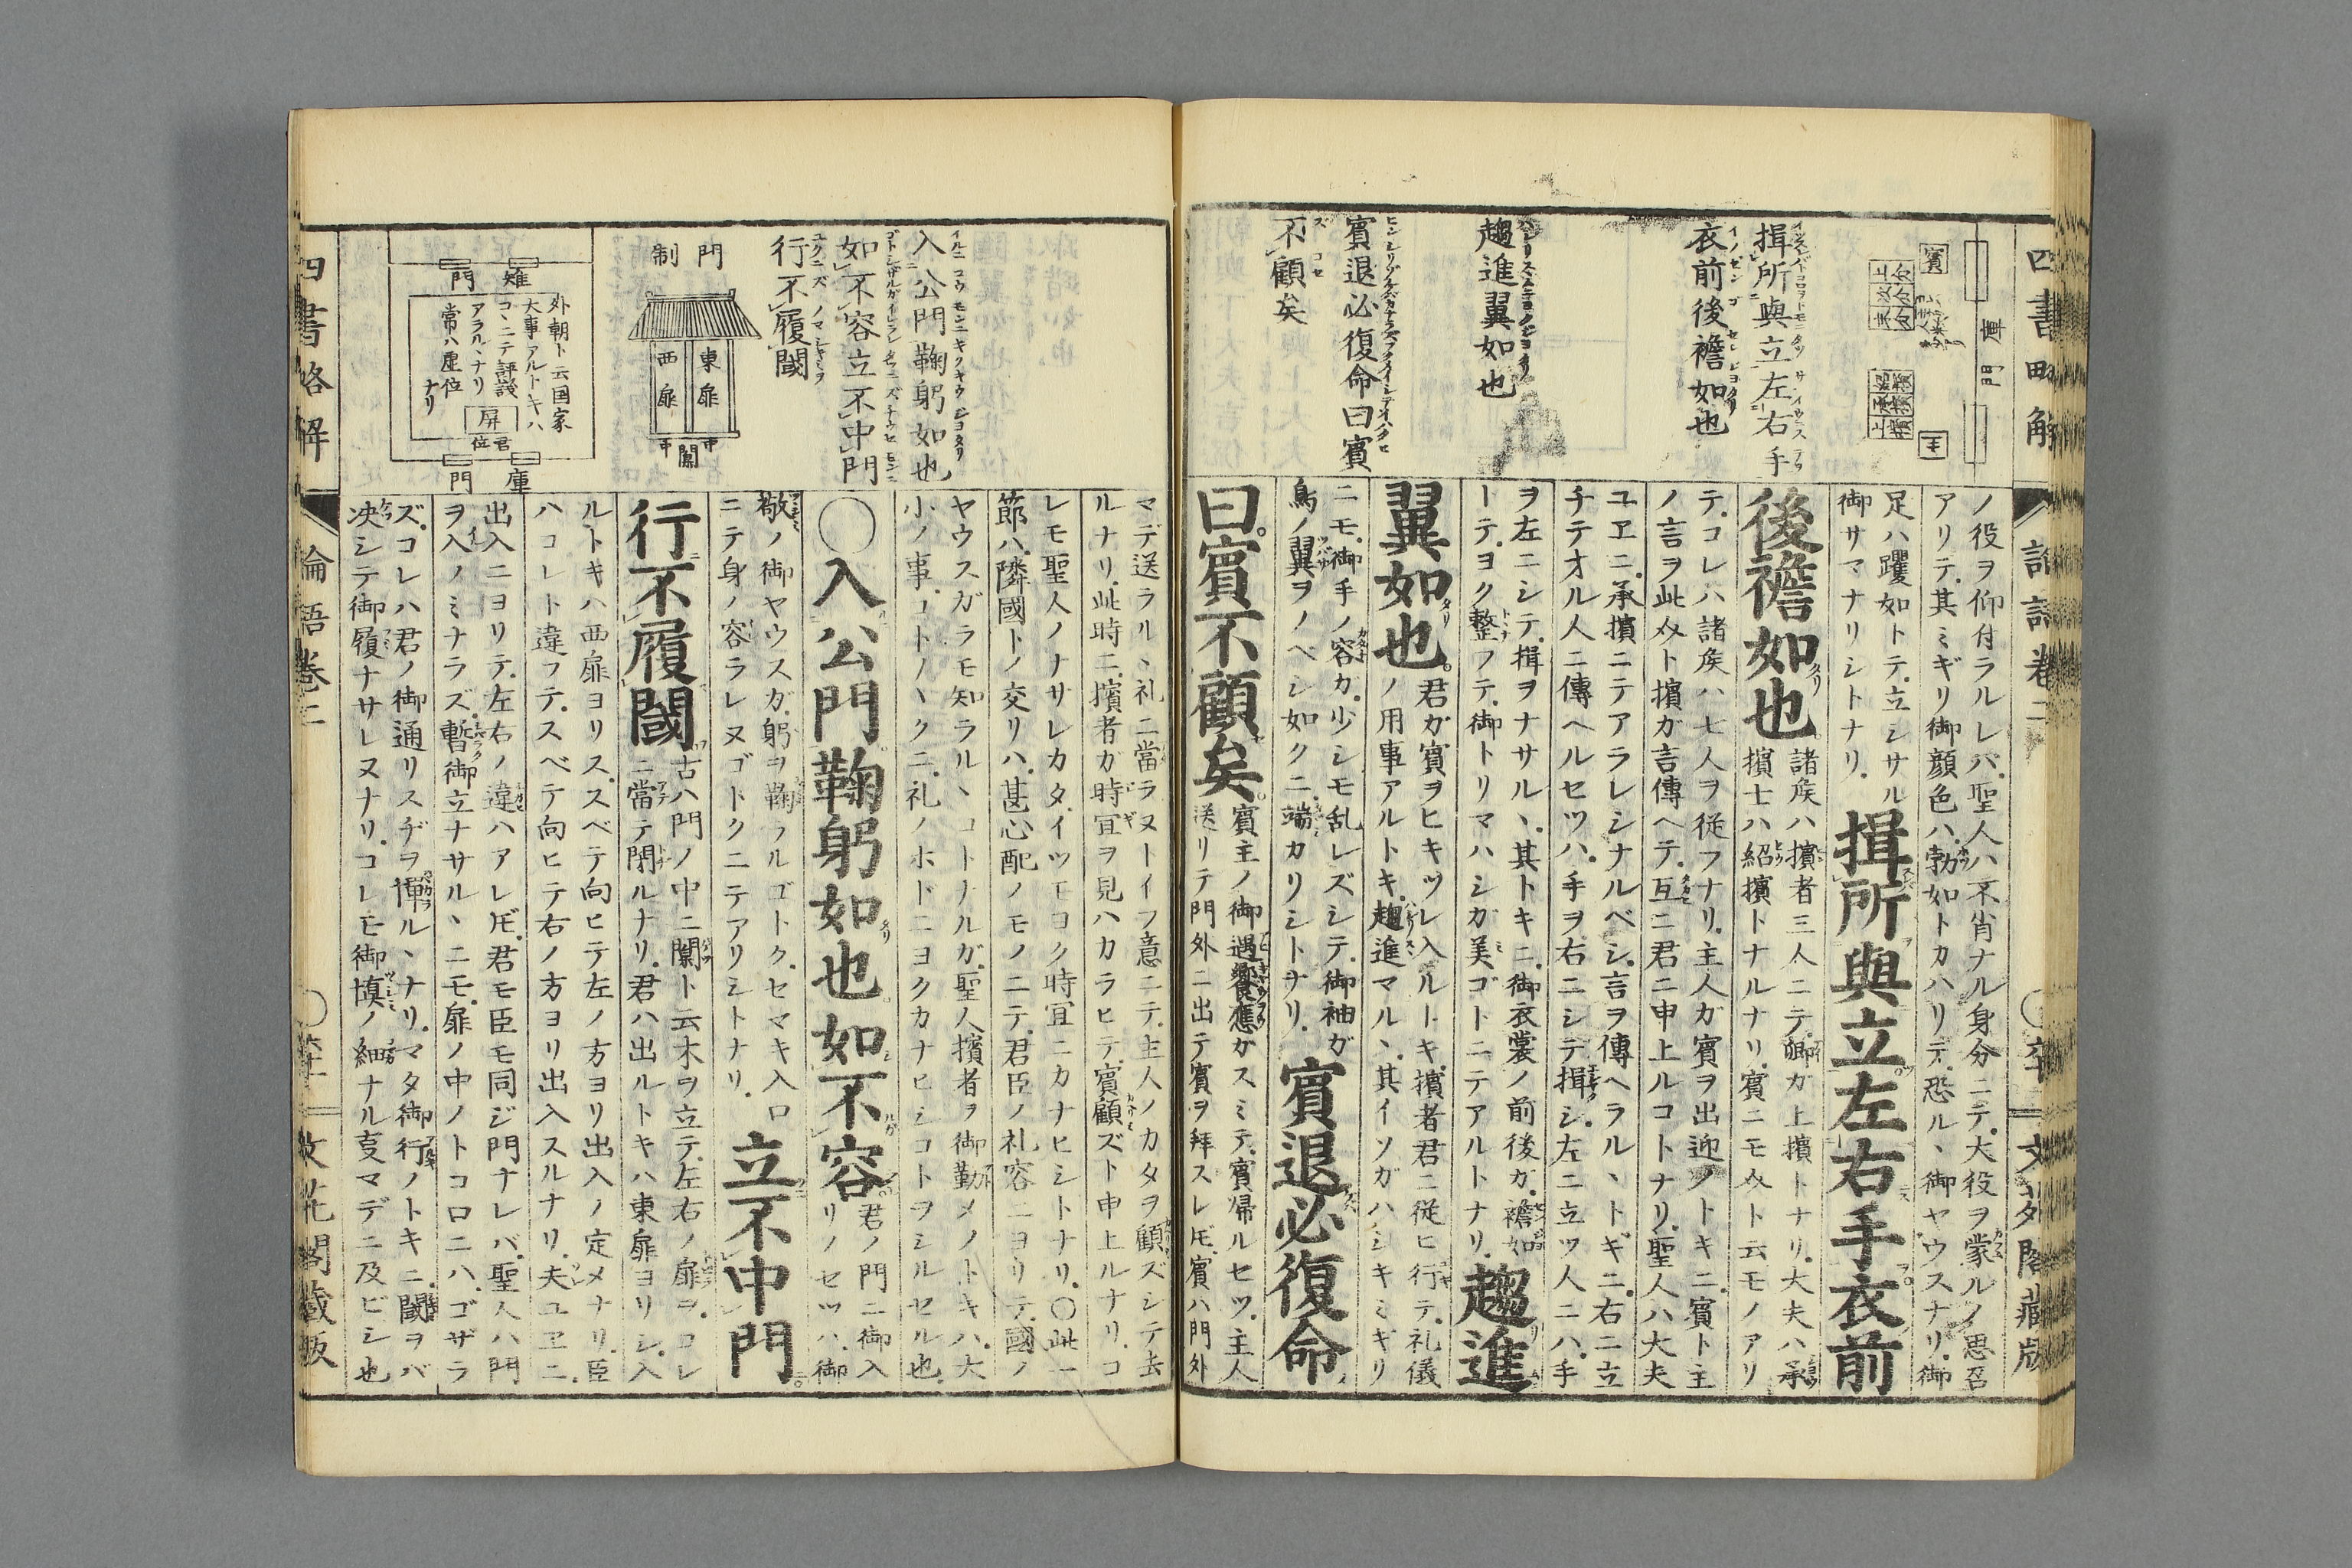 四書略解
論語卷二
文花閣藏版
庫門
賓
主
揖所與立左右手
衣前後襜如也
趨進翼如也
賓退必復命曰賓
不顧矣
ノ役ヲ仰付ラルレバ聖人ハ不肖ナル身分ニテ大役ヲ蒙ルノ思召
アリテ其ミギリ御顔色ハ勃如トカハリテ恐ル、御ヤウスナリ御
足ハ躩如トテ立シサル
御サマナリシトナリ
揖所與立左右手衣前
後襜如也
諸矦ハ擯者三人ニテ卿ガ上擯トナリ大夫ハ承
擯士ハ紹擯トナルナリ賓ニモ〆ト云モノアリ
テコレハ諸矦ハ七人ヲ従フナリ主人ガ賓ヲ出迎フトキニ賓ト主
ノ言ヲ此〆ト擯ガ言傳ヘテ互ニ君ニ申上ルコトナリ聖人ハ大夫
ユヱニ承擯ニテアラレシナルベシ言ヲ傳ヘラル、トキニ右ニ立
チテオル人ニ傳ヘルセツハ手ヲ右ニシテ揖シ左ニ立ツ人ニハ手
ヲ左ニシテ揖ヲナサル、其トキニ御衣裳ノ前後ガ襜如
トテヨク整フテ御トリマハシガ美ゴトニテアルトナリ
趨進
翼如也
君ガ賓ヲヒキツレ入ルトキ擯者君ニ従ヒ行テ礼儀
ノ用事アルトキ趨進マル、其イソガハシキミギリ
ニモ御手ノ容カ少シモ乱レズシテ御袖ガ
鳥ノ翼ヲノベシ如クニ端カリシトナリ
賓退必復命
曰賓不顧矣
賓主ノ御遇饗應ガスミテ賓帰ルセツ主人
送リテ門外ニ出テ賓ヲ拜スレ𪜈賓ハ門外
入公門鞠躬如也
如不容立不中門
行不履閾
門制
東扉
西扉
闑
中
中
雉門
外朝ト云国家
大事アルトキハ
コヽニテ評議
アラルヽナリ
常ハ虚位
ナリ
屏
君位
庫門
マデ送ラル、礼ニ當ラヌトイフ意ニテ主人ノカタヲ顧ズシテ去
ルナリ此時ニ擯者ガ時宜ヲ見ハカラヒテ賓顧ズト申上ルナリコ
レモ聖人ノナサレカタイツモヨク時宜ニカナヒシトナリ〇此一
節ハ隣國トノ交リハ甚心配ノモノニテ君臣ノ礼容ニヨリテ國ノ
ヤウスガラモ知ラル、コトナルガ聖人擯者ヲ御勤メノトキハ大
小ノ事コト〴〵クニ礼ノホドニヨクカナヒシコトヲシルセル也
〇入公門鞠躬如也如不容
君ノ門ニ御入
リノセツハ御
敬ノ御ヤウスガ躬ヲ鞠ラルゴトクセマキ入口
ニテ身ノ容ラレヌゴトクニテアリシトナリ
立不中門
行不履閾
古ハ門ノ中ニ闑ト云木ヲ立テ左右ノ扉ヲコレ
ニ當テ閉ルナリ君ハ出ルトキハ東扉ヨリシ入
ルトキハ西扉ヨリススベテ向ヒテ左ノ方ヨリ出入ノ定メナリ臣
ハコレト違フテスベテ向ヒテ右ノ方ヨリ出入スルナリ夫ユヱニ
出入ニヨリテ左右ノ違ハアレ𪜈君モ臣モ同ジ門ナレバ聖人ハ門
ヲ入ノミナラズ暫御立ナサル、ニモ扉ノ中ノトコロニハゴザラ
ズコレハ君ノ御通リスヂヲ憚ル、ナリマタ御行ノトキニ閾ヲバ
决シテ御履ナサレヌナリコレモ御慎ノ細ナル㕝マデニ及ビシ也
四書略解
論語卷二
文花閣藏版